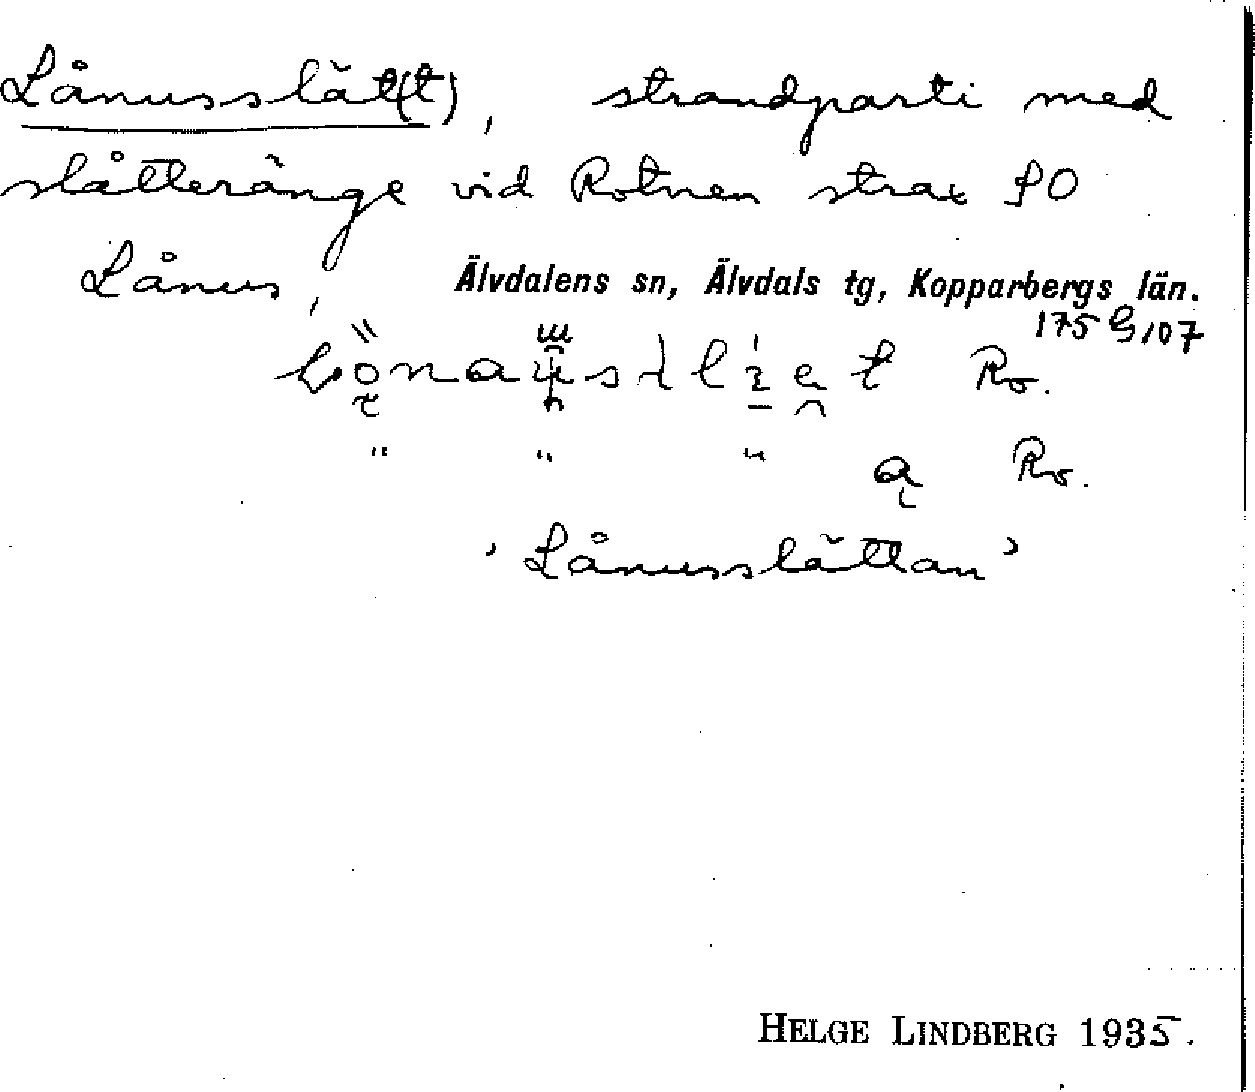 Lånusslät(t), strandparti med
slåtteränge vid Rotnen strax SO
Lånus,
Älvdalens sn, Älvdals tg, Kopparbergs län.
175 G 107
Ro.
" " " Ro.
'Lånusslättan'
HELGE LINDBERG 1935.